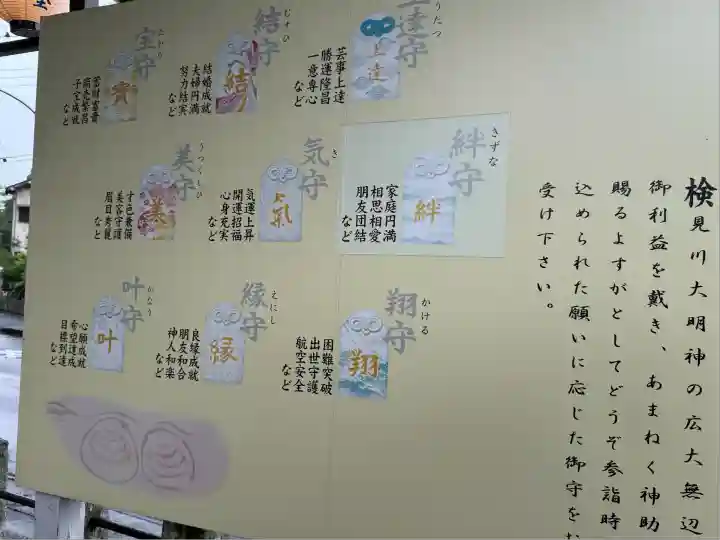 検見川大明神の広大無辺
御利益を戴き、あまねく神助
賜るよすがとしてどうぞ参詣時
込められた願いに応じた御守をお
受け下さい。
うたつ
上達守
上達
芸事上達
勝運隆昌
一意専心
など
むすひ
結守
結
結婚成就
夫婦円満
努力結実
など
宝守
寳
蓄財富貴
商売繁昌
子宝成就
など
きずな
絆守
絆
家庭円満
相思相愛
朋友団結
など
き
気守
氣
気運上昇
開運招福
心身充実
など
うつくしひ
美守
美
才色兼備
美容守護
眉目秀麗
など
かける
翔守
翔
困難突破
出世守護
航空安全
など
えにし
縁守
縁
良縁成就
朋友和合
神人和楽
など
かなう
叶守
叶
心願成就
希望達成
目標到達
など